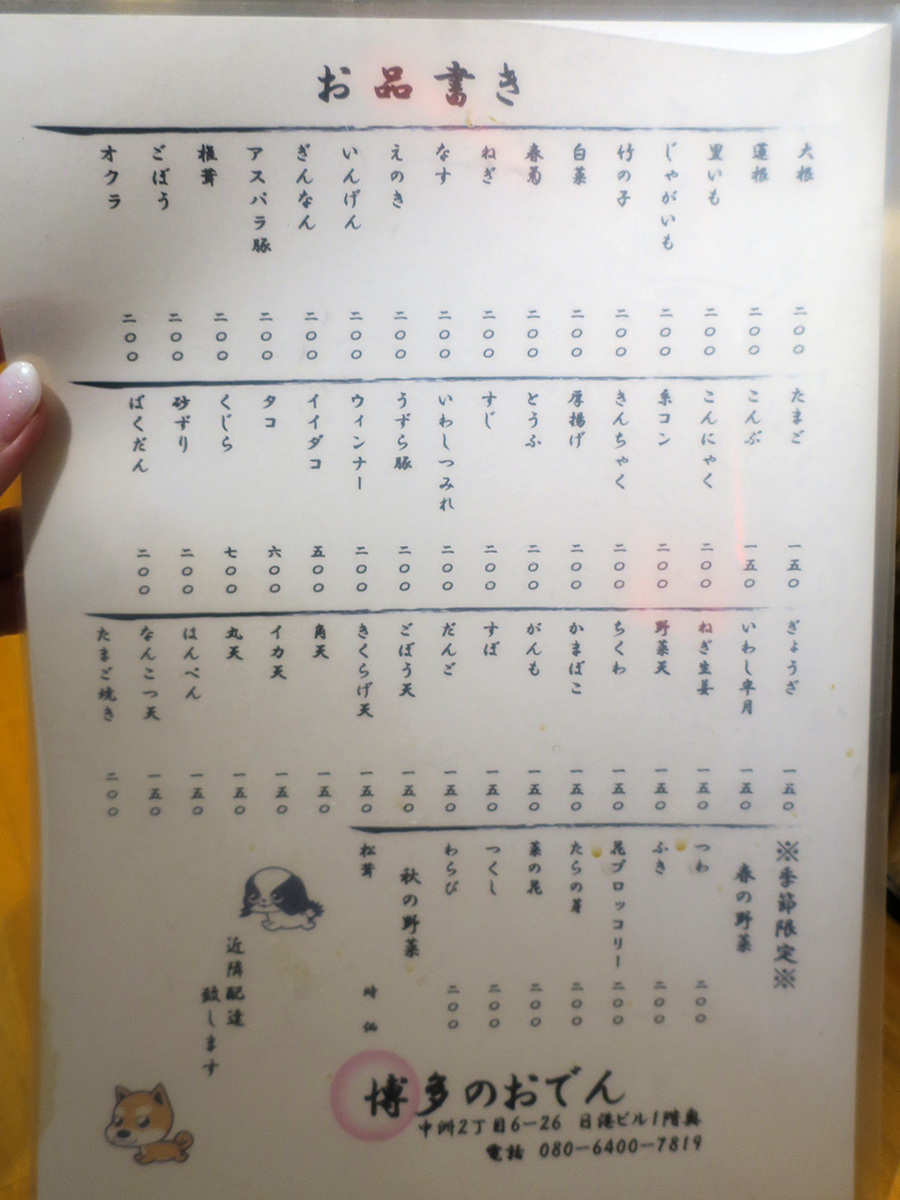 お品書き
大根 二〇〇
蓮根 二〇〇
里いも 二〇〇
じゃがいも 二〇〇
竹の子 二〇〇
白菜 二〇〇
春菊 二〇〇
ねぎ 二〇〇
なす 二〇〇
えのき 二〇〇
いんげん 二〇〇
ぎんなん 二〇〇
アスパラ豚 二〇〇
椎茸 二〇〇
ごぼう 二〇〇
オクラ 二〇〇
たまご 一五〇
こんぶ 一五〇
こんにゃく 二〇〇
糸コン 二〇〇
きんちゃく 二〇〇
厚揚げ 二〇〇
とうふ 二〇〇
すじ 二〇〇
いわしつみれ 二〇〇
うずら豚 二〇〇
ウィンナー 二〇〇
イイダコ 五〇〇
タコ 六〇〇
くじら 七〇〇
砂ずり 二〇〇
ばくだん 二〇〇
ぎょうざ 一五〇
いわし半月 一五〇
ねぎ生姜 一五〇
野菜天 一五〇
ちくわ 一五〇
かまぼこ 一五〇
がんも 一五〇
すぼ 一五〇
だんご 一五〇
ごぼう天 一五〇
きくらげ天 一五〇
角天 一五〇
イカ天 一五〇
丸天 一五〇
はんぺん 一五〇
なんこつ天 一五〇
たまご焼き 二〇〇
※季節限定※
春の野菜
つわ 二〇〇
ふき 二〇〇
花ブロッコリー 二〇〇
たらの芽 二〇〇
菜の花 二〇〇
つくし 二〇〇
わらび 二〇〇
秋の野菜
松茸 時価
近隣配達
致します
博多のおでん
中洲2丁目6-26 日港ビル1階奥
電話 080-6400-7819